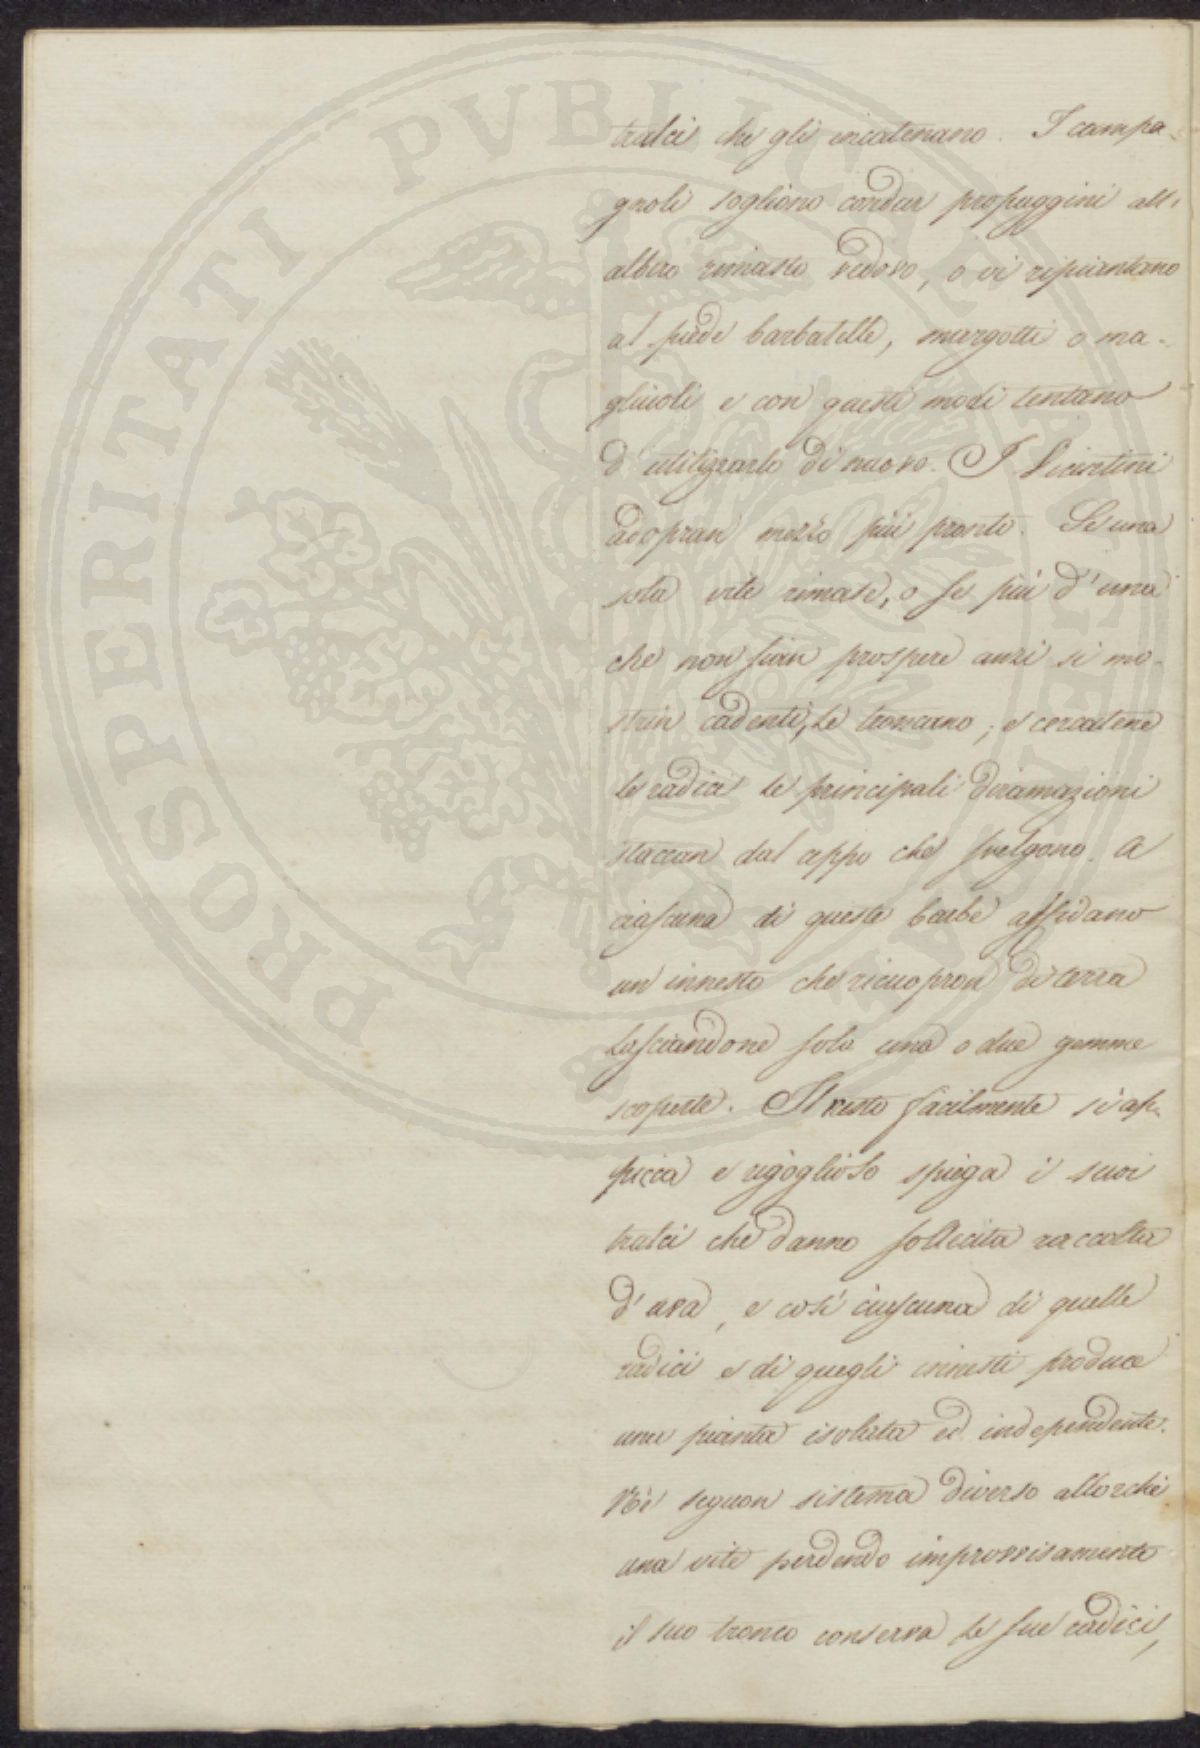 PROSPERITATI PVBLICAE AVGENDAE
tralci che gli incatenano. I campa-
gnoli sogliono condur propaggini all'
albero rimasto vedovo, o vi ripiantano
al piede barbatelle, margotti o ma-
gliuoli e con questi modi tentano
d'utilizzarlo di nuovo. I Vicentini
adopran mezzo più pronto. Se una
sola vite rimase, o se più d'una
che non sian prospere anzi si mo-
strin cadenti, le troncano; e cercatene
le radici le principali diramazioni
staccan dal ceppo che svelgono. A
ciascuna di queste barbe affidano
un innesto che ricuopron di terra
lasciandone solo una o due gemme
scoperte. Il nesto facilmente s'ap-
picca e rigoglioso spiega i suoi
tralci che danno sollecita raccolta
d'uva, e così ciascuna di quelle
radici e di quegli innesti produce
una pianta isolata ed independente.
Nè seguon sistema diverso allorchè
una vite perdendo improvvisamente
il suo tronco conserva le sue radici,